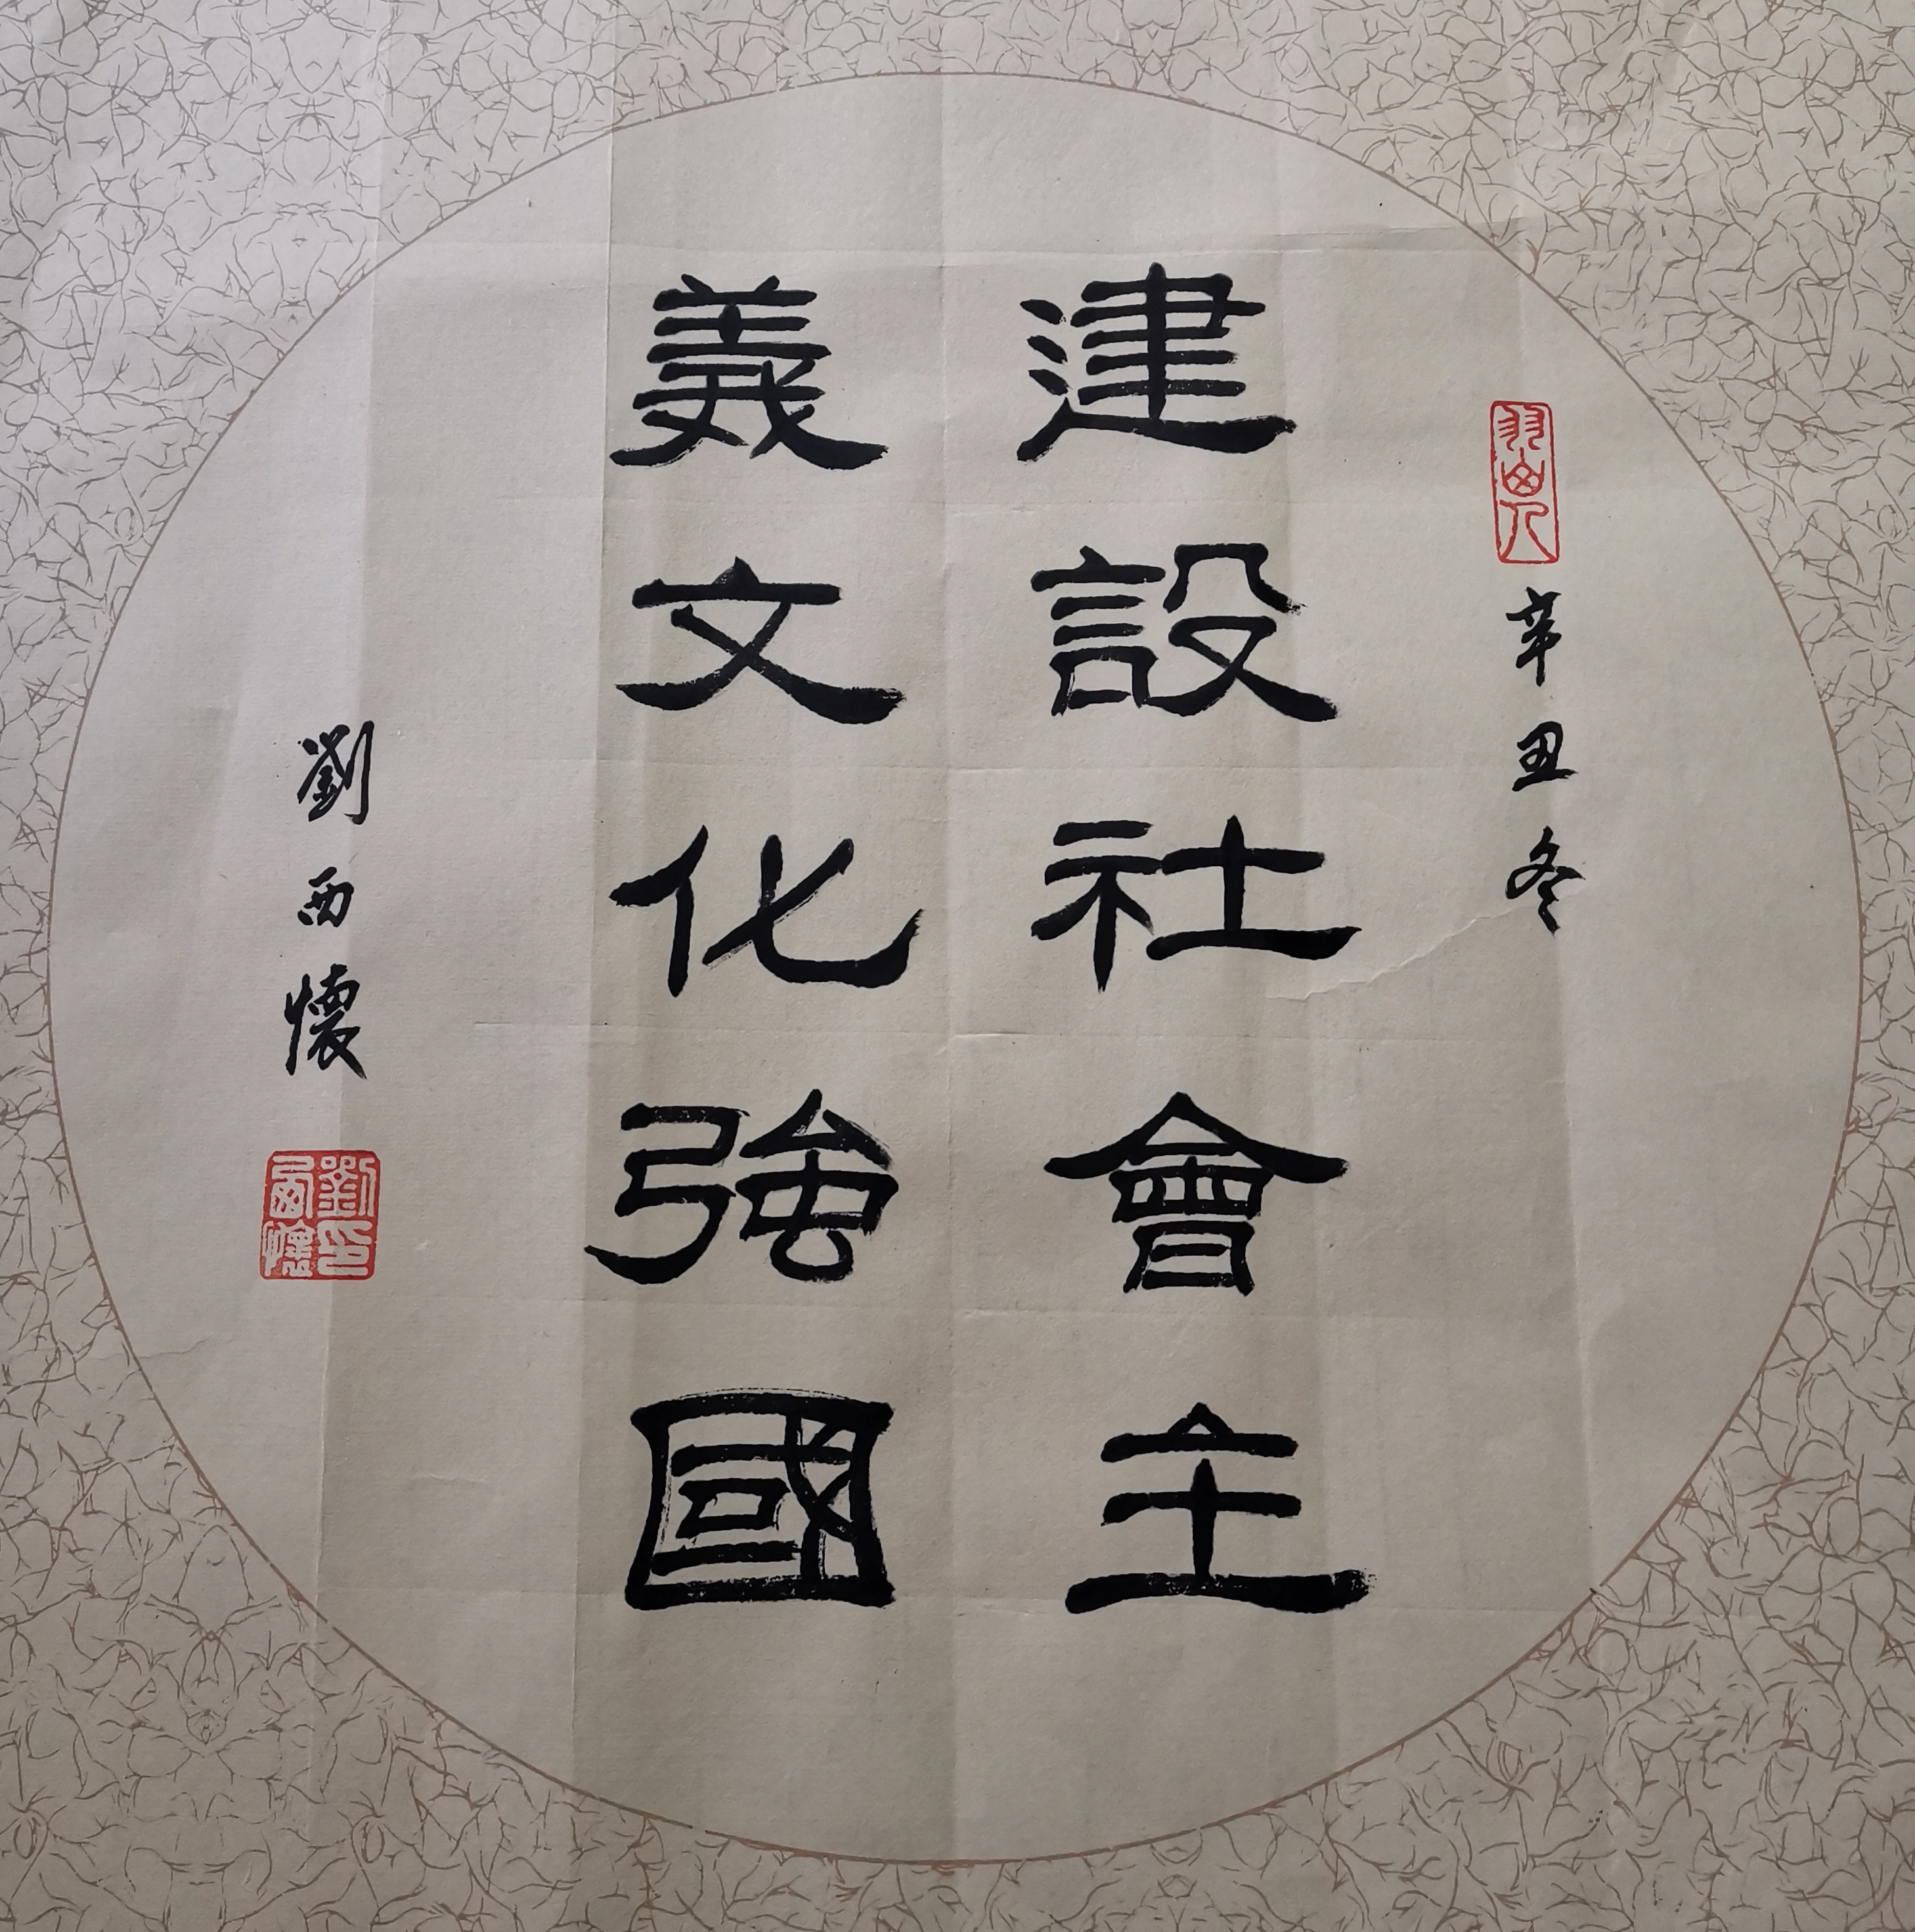 辛丑冬
建設社會主
義文化強國
劉西懷
劉印
西懷